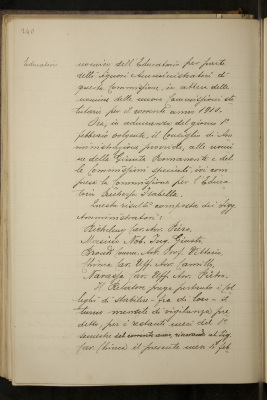 240
Educatorio
nomina dell'Educatorio per parte
delli signori Amministratori di
questa Commissione, in attesa delle
nomine delle nuove Commissioni sta
tutarie per il corrente anno 1910.
Ora, in adunanza del giorno 1º
febbraio volgente, il Consiglio di Am
ministrazione procedé, alle nomi
ne della Giunta Permanente e del
le Commissioni speciali, ivi com
presa la Commissione per l'Educa
torio Duchessa Isabella.
Questa risultò composta dei Sigg.
Amministratori:
Car. Avv. Piero,
Nob. Ing. Giusto,
Comm. Avv. Prof. Vittorio,
Chiesa Car. Uff. Avv. Camillo,
Car. Uff. Avv. Pietro.
Il Relatore prega pertanto i Col
leghi di stabilire - fra di loro - il
turno mensile di vigilanza pre
detto, per i restanti mesi del 1º
semestre del corrente anno, al Sig.
Car. Chiesa il presente mese di feb